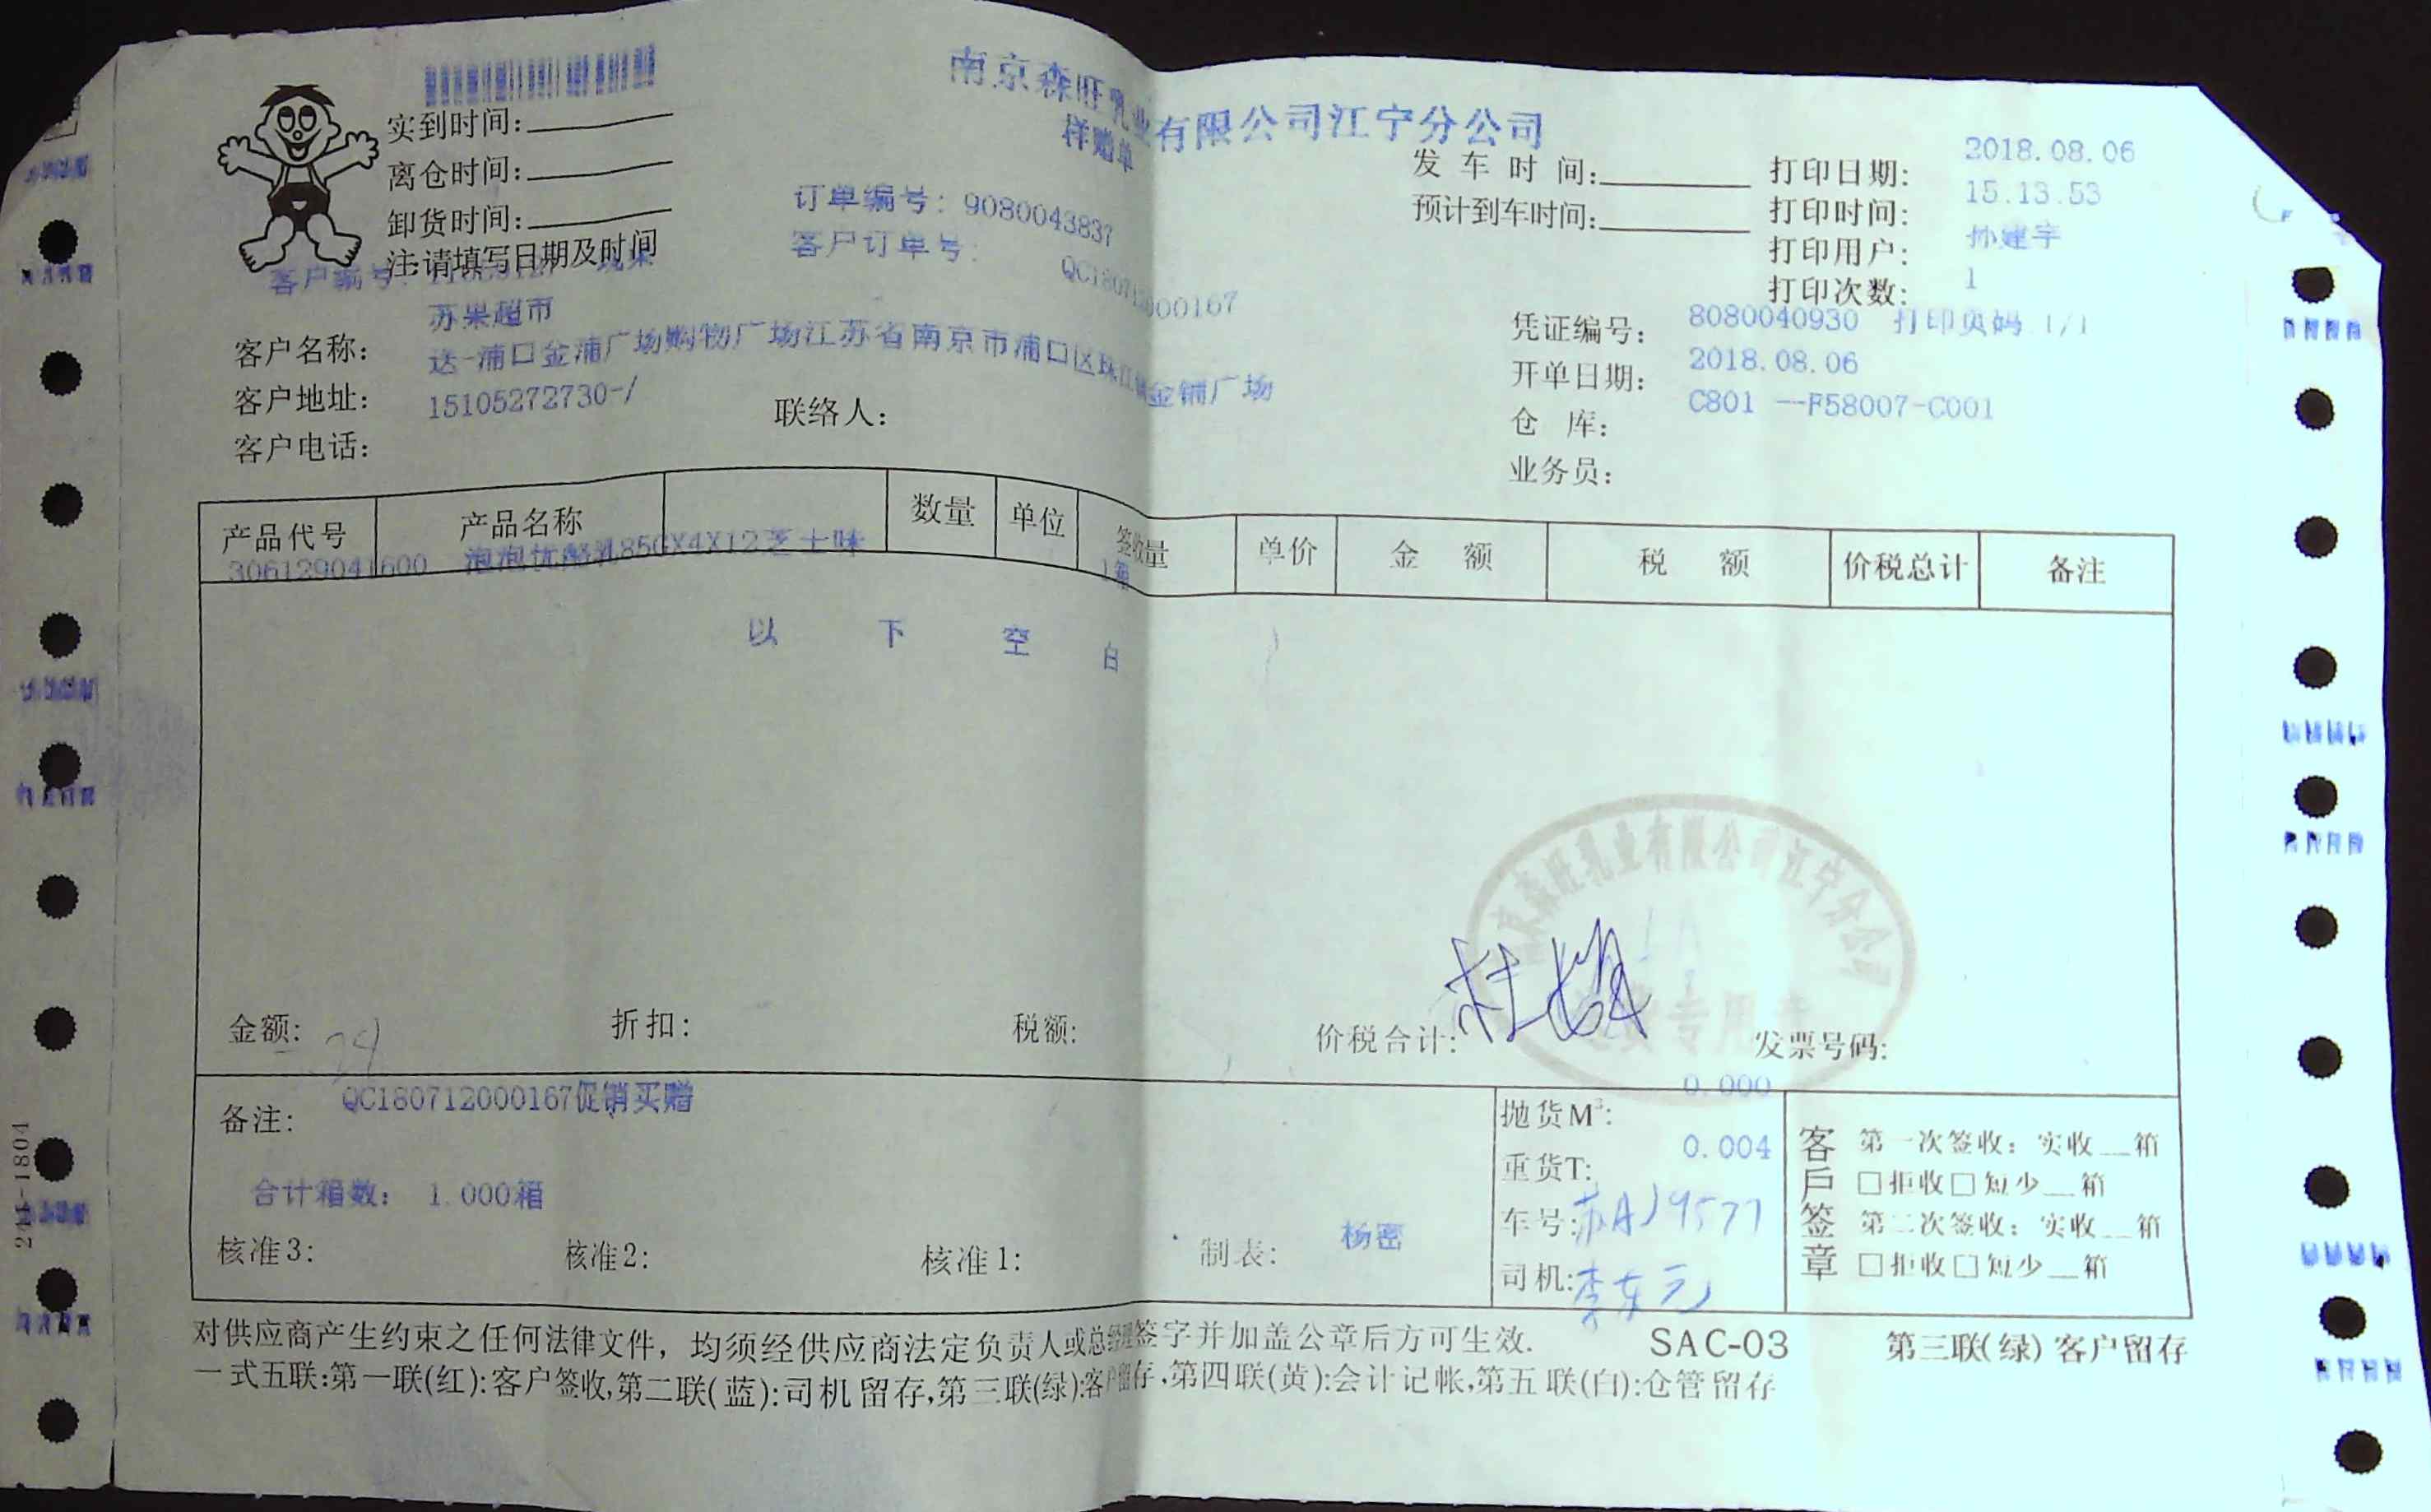 南京森旺乳业有限公司江宁分公司
样赠单
实到时间:
离仓时间:
卸货时间:
注:请填写日期及时间
订单编号: 9080043837
客户订单号:
QC180712000167
发 车 时 间:
预计到车时间:
打印日期: 2018.08.06
打印时间: 15.13.53
打印用户: 孙建宇
打印次数: 1
客户编号:
客户名称: 苏果超市
客户地址: 送-浦口金浦广场购物广场江苏省南京市浦口区珠江镇金铺广场
客户电话: 15105272730-/
联络人:
凭证编号: 8080040930 打印页码 1/1
开单日期: 2018.08.06
仓 库: C801 --F58007-C001
业务员:
产品代号 产品名称 数量 单位 签收量 单价 金 额 税 额 价税总计 备注
306129041600 泡泡优酪乳85GX4X12芝士味 1箱
以 下 空 白
南京森旺乳业有限公司江宁分公司
金额: 折扣: 税额: 价税合计: 发票号码:
备注: QC180712000167促销买赠
合计箱数: 1.000箱
核准3: 核准2: 核准1: 制表: 杨密
抛货M³: 0.000
重货T: 0.004
车号:苏AJ9577
司机:李东元
客户签章
第一次签收: 实收__箱
□拒收□短少__箱
第二次签收: 实收__箱
□拒收□短少__箱
对供应商产生约束之任何法律文件, 均须经供应商法定负责人或总经理签字并加盖公章后方可生效. SAC-03 第三联(绿)客户留存
一式五联:第一联(红):客户签收,第二联(蓝):司机留存,第三联(绿):客户留存,第四联(黄):会计记帐,第五联(白):仓管留存